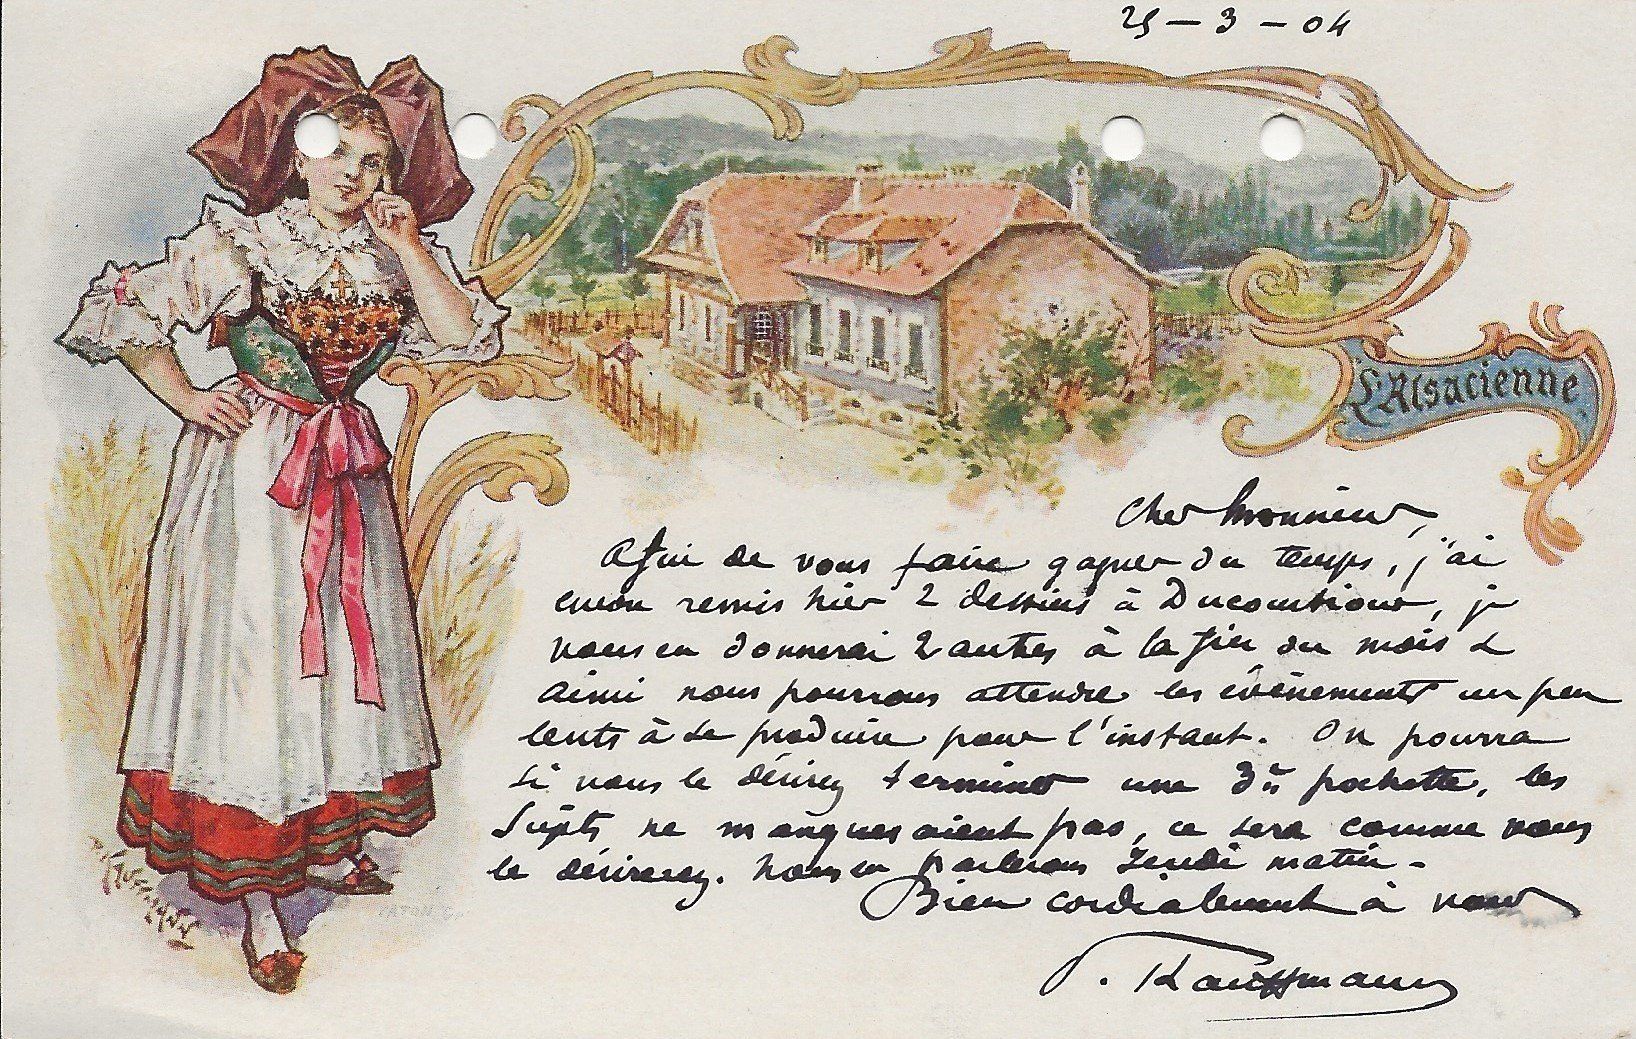 25 - 3 - 04
L'Alsacienne
Cher Monsieur,
Afin de vous faire gagner du temps, j'ai
encore remis hier 2 dessins à Ducourtioux, je
vous en donnerai 2 autres à la fin du mois &
ainsi nous pourrons attendre les événements un peu
lents à se produire pour l'instant. On pourra
si vous le désirez terminer une 3è pochette, les
sujets ne manqueraient pas, ce sera comme vous
le désirerez. Nous en parlerons Jeudi matin -
Bien cordialement à vous
P. Kauffmann
KAUFFMANN